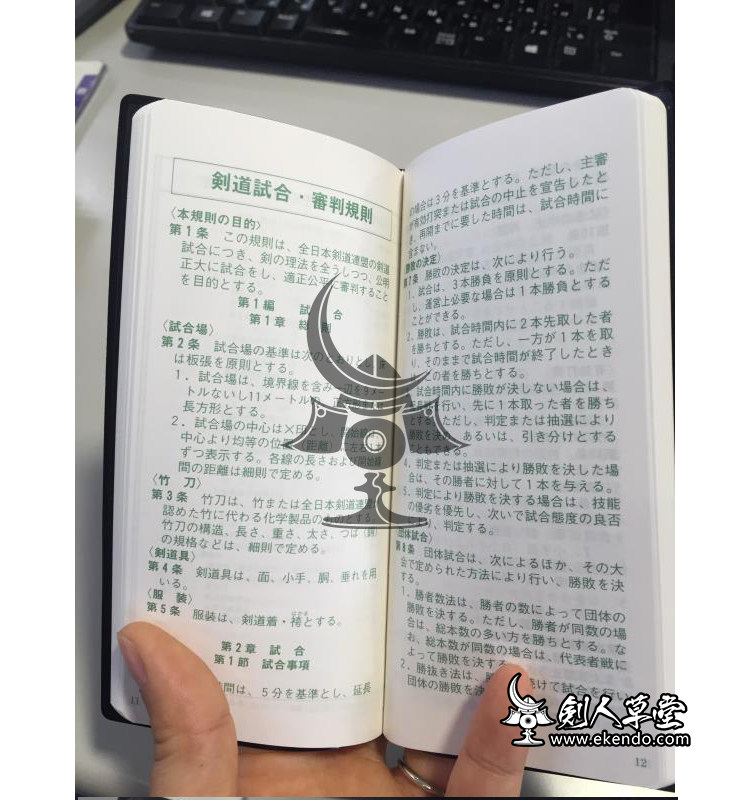 剣道試合・審判規則
〈本規則の目的〉
第1条　この規則は、全日本剣道連盟の剣道
試合につき、剣の理法を全うしつつ、公明
正大に試合をし、適正公平に審判すること
を目的とする。
第1編　試　合
第1章　総　則
〈試合場〉
第2条　試合場の基準は次のとおりとし、
は板張を原則とする。
1．試合場は、境界線を含み一辺を9メー
トルないし11メートルの、
長方形とする。
2．試合場の中心は×印とし、開始線
中心より均等の位置（距離）に左右
ずつ表示する。各線の長さおよび開始線
間の距離は細則で定める。
〈竹　刀〉
第3条　竹刀は、竹または全日本剣道連盟
認めた竹に代わる化学製品のものとする。
竹刀の構造、長さ、重さ、太さ、つば（鍔）
の規格などは、細則で定める。
〈剣道具〉
第4条　剣道具は、面、小手、胴、垂れを用
いる。
〈服　装〉
第5条　服装は、剣道着・袴とする。
第2章　試　合
第1節　試合事項
間は、5分を基準とし、延長
11
の場合は3分を基準とする。ただし、主審
が有効打突または試合の中止を宣告したと
き、再開までに要した時間は、試合時間に
含まない。
〈勝敗の決定〉
第7条　勝敗の決定は、次により行う。
1．試合は、3本勝負を原則とする。ただ
し、運営上必要な場合は1本勝負とする
ことができる。
2．勝敗は、試合時間内に2本先取した者
を勝ちとする。ただし、一方が1本を取
り、そのまま試合時間が終了したとき
この者を勝ちとする。
試合時間内に勝敗が決しない場合は、
を行い、先に1本取った者を勝ち
とする。ただし、判定または抽選により
勝敗を決し、あるいは、引き分けとする
こともできる。
4．判定または抽選により勝敗を決した場
合は、その勝者に対して1本を与える。
5．判定により勝敗を決する場合は、技能
の優劣を優先し、次いで試合態度の良否
により、判定する。
〈団体試合〉
第8条　団体試合は、次によるほか、その大
会で定められた方法により行い、勝敗を決
する。
1．勝者数法は、勝者の数によって団体の
勝敗を決する。ただし、勝者が同数の場
合は、総本数の多い方を勝ちとする。な
お、総本数が同数の場合は、代表者戦に
よって勝敗を決する。
2．勝抜き法は、続けて試合を行い
団体の勝敗を決
12
剣人草堂
www.ekendo.com